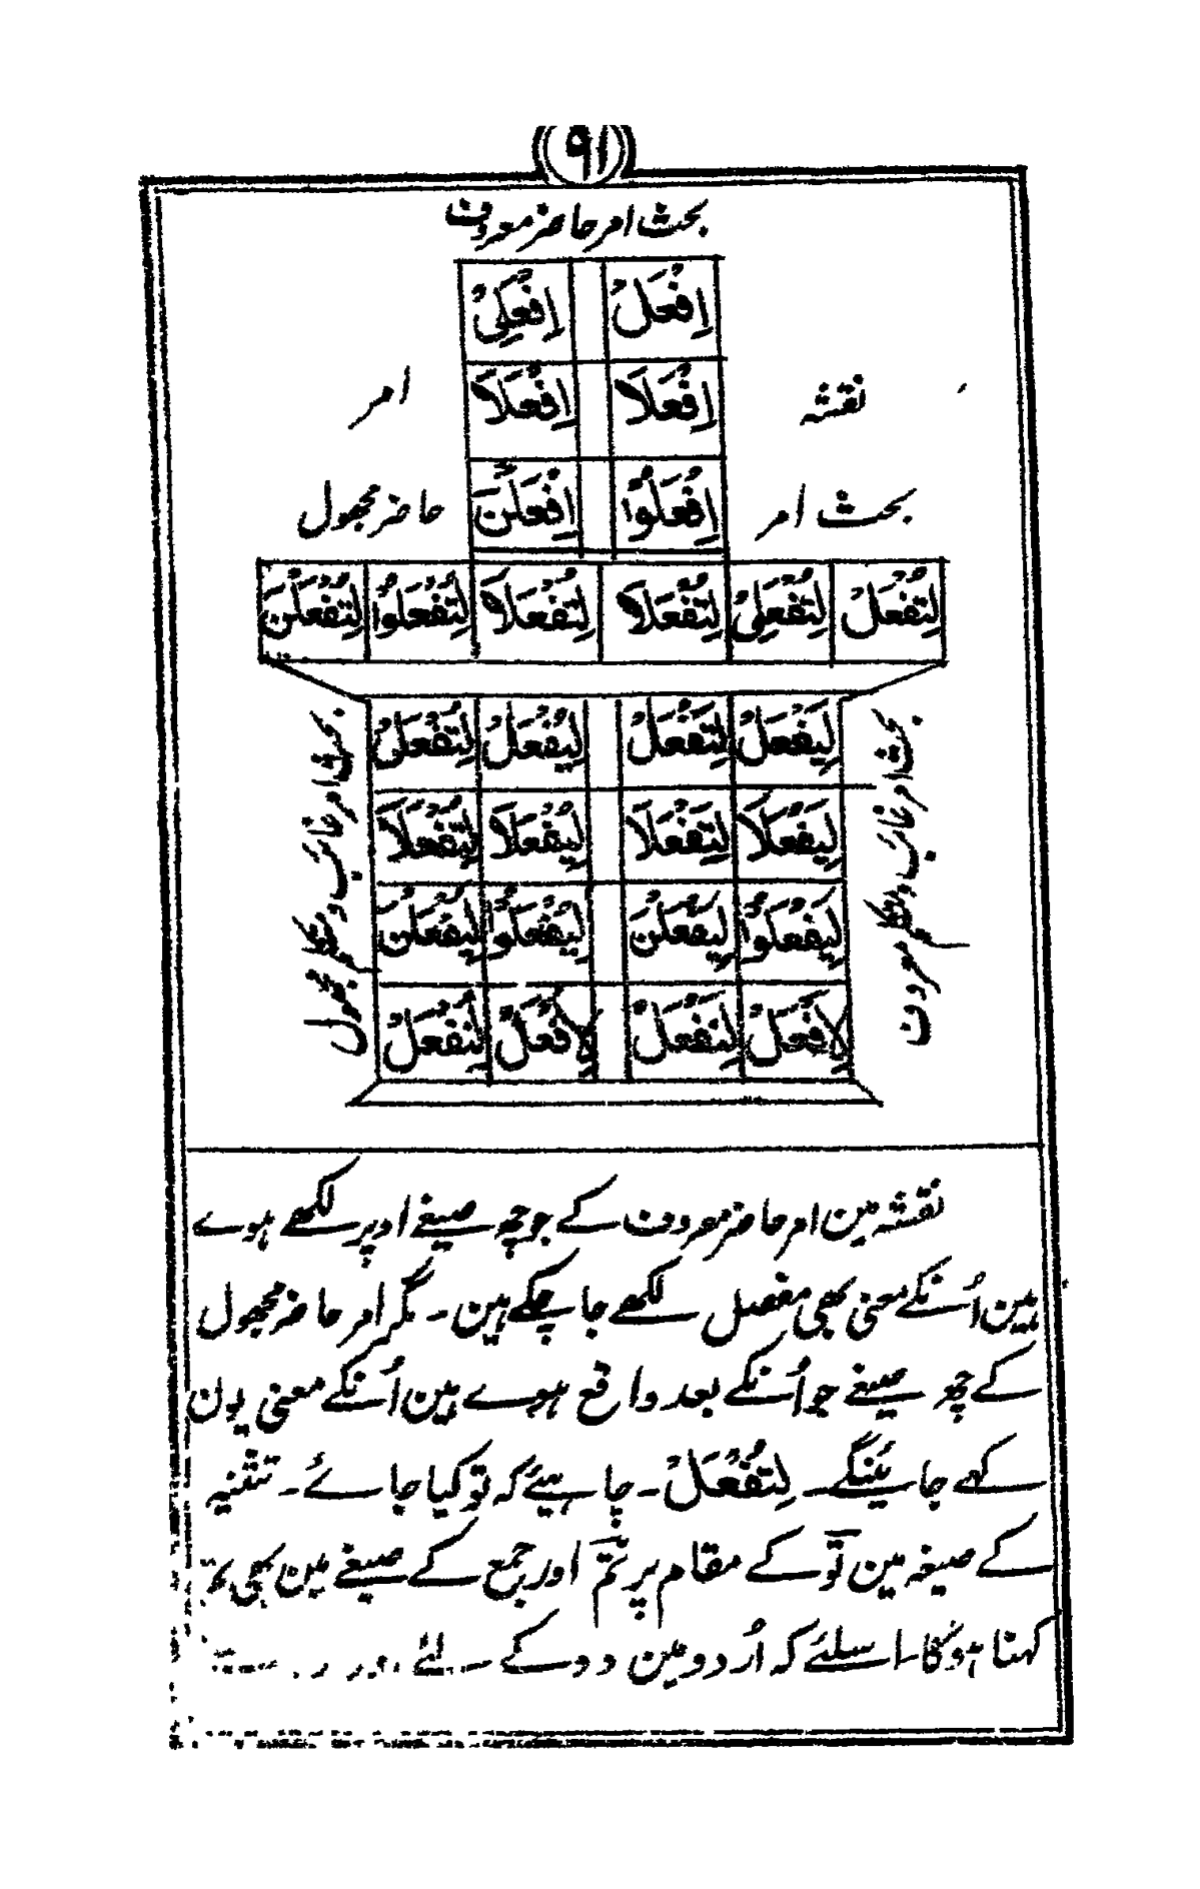 ۹۱
بحث امر حاضر معروف
اِفْعَلْ اِفْعَلِیْ
نقشہ اِفْعَلَا اِفْعَلَا امر
بحث امر اِفْعَلُوْا اِفْعَلْنَ حاضر مجہول
لِتُفْعَلْ لِتُفْعَلِیْ لِتُفْعَلَا لِتُفْعَلَا لِتُفْعَلُوْا لِتُفْعَلْنَ
بحث امر غائب و متکلم معروف
لِیَفْعَلْ لِتَفْعَلْ لِیُفْعَلْ لِتُفْعَلْ
لِیَفْعَلَا لِتَفْعَلَا لِیُفْعَلَا لِتُفْعَلَا
لِیَفْعَلُوْا لِیَفْعَلْنَ لِیُفْعَلُوْا لِیُفْعَلْنَ
لِاَفْعَلْ لِنَفْعَلْ لِاُفْعَلْ لِنُفْعَلْ
بحث امر غائب و متکلم مجہول
نقشہ مین امر حاضر معروف کے جو چھ صیغے اوپر لکھے ہوے
ہین اُنکے معنی بھی مفصل لکھے جا چکے ہین ۔ مگر امر حاضر مجہول
کے چھ صیغے جو اُنکے بعد واقع ہوے ہین اُنکے معنی یون
کہے جائینگے ۔ لِتُفْعَلْ ۔ چاہیئے کہ تو کیا جائے ۔ تثنیہ
کے صیغہ مین تو کے مقام پر تم اور جمع کے صیغے مین بھی تم
کہنا ہوگا ۔ اسلئے کہ اُردو مین دو کے لئے اور